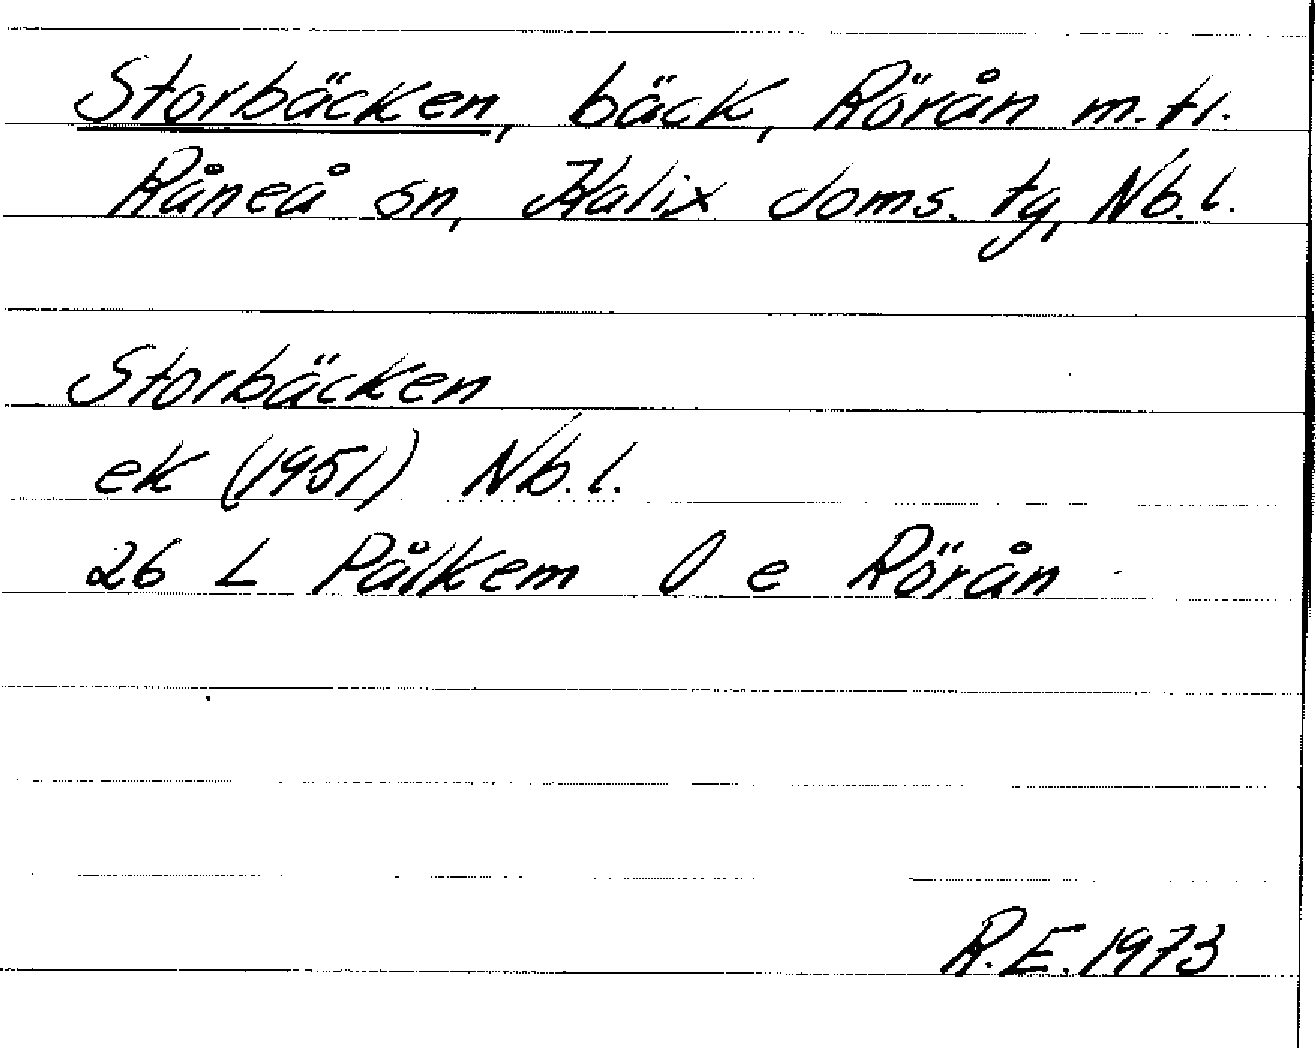 Storbäcken, bäck, Rörån m.fl.
Råneå sn, Kalix doms. tg, Nb.l.
Storbäcken
ek (1951) Nb.l.
26 L Pålkem O e Rörån
R.E. 1973